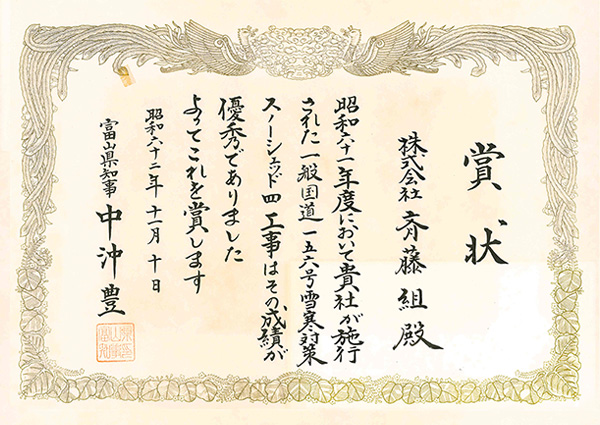 賞状
株式会社 斉藤組殿
昭和六十一年度において貴社が施行
された一般国道一五六号雪寒対策
スノーシェッド四工事はその成績が
優秀でありました
よってこれを賞します
昭和六十二年十一月十日
富山県知事 中沖豊